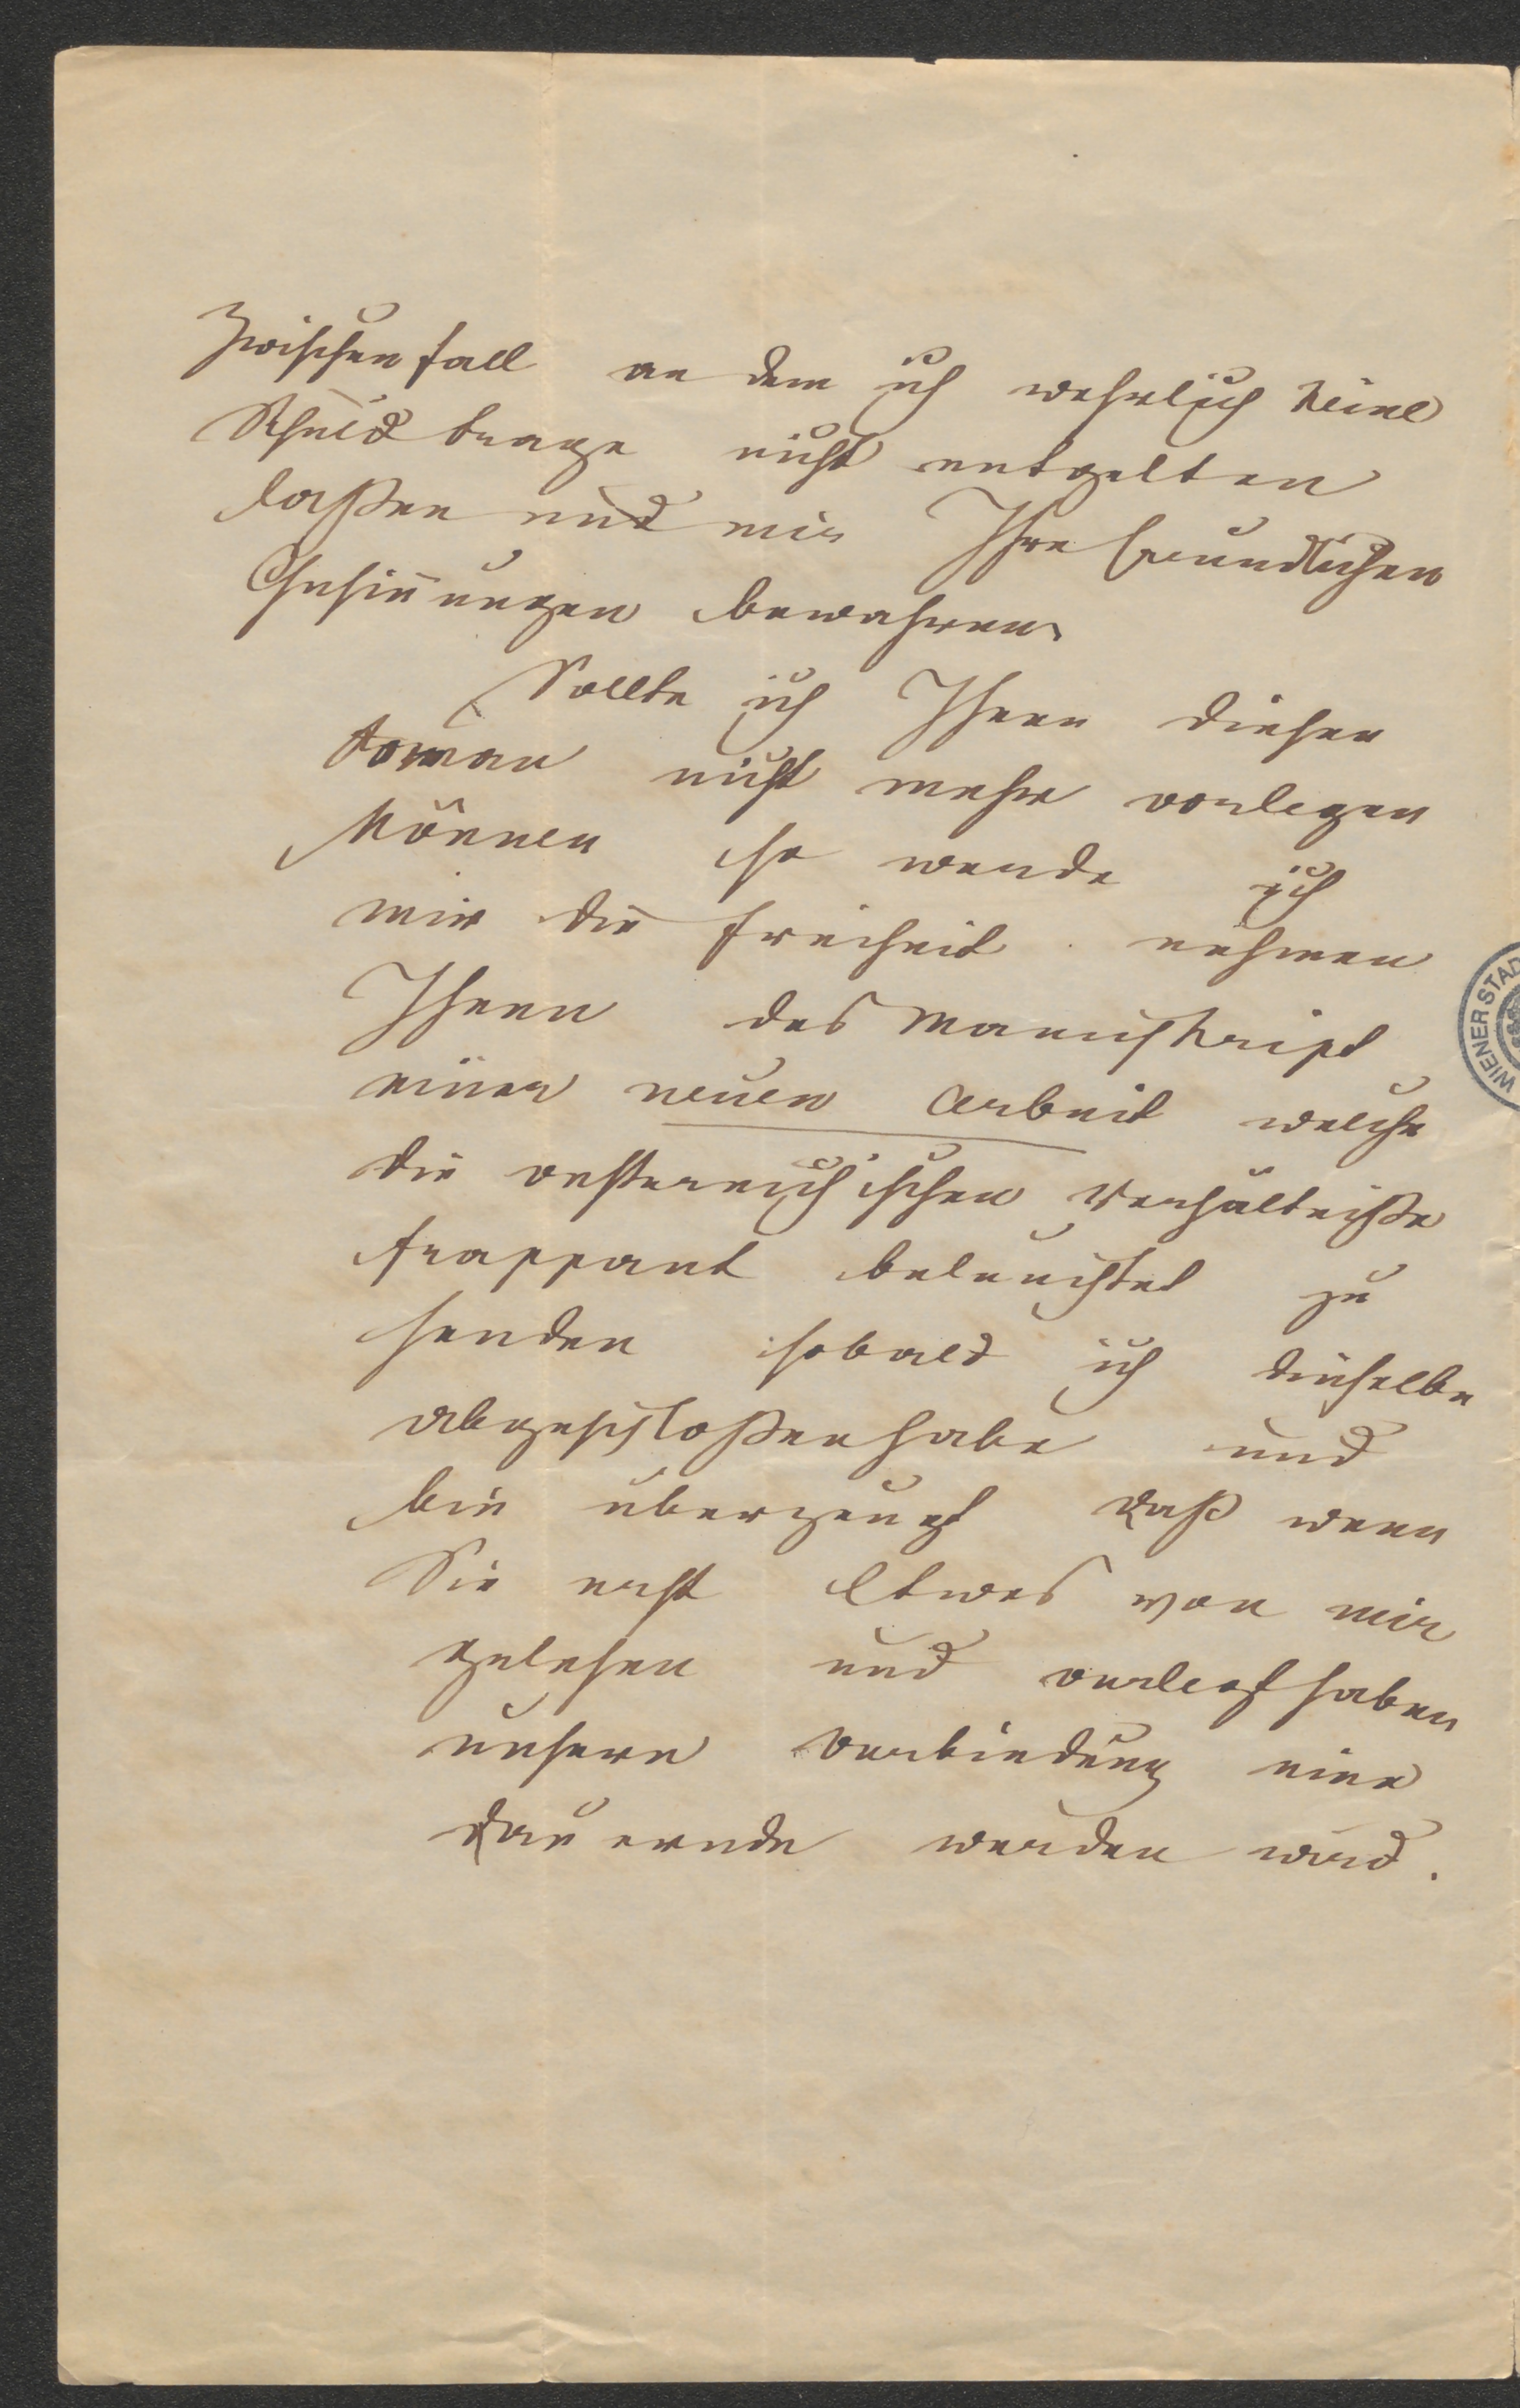 Zwischenfall an dem ich wahrlich keine
Schuld trage nicht entgelten
laßen und mir Ihre freundlichen
Gesinnungen bewahren
Sollte ich Ihnen diesen
Roman nicht mehr vorlegen
können so werde ich
mir die Freiheit nehmen
Ihnen das Manuskript
einer neuen Arbeit welche
die oesterreichischen Verhältniße
frappant beleuchtet zu
senden sobald ich dieselbe
abgeschloßen habe und
bin überzeugt daß wenn
Sie erst Etwas von mir
gelesen und verlegt haben
unsere Verbindung eine
dauernde werden wird.
WIENER STAD